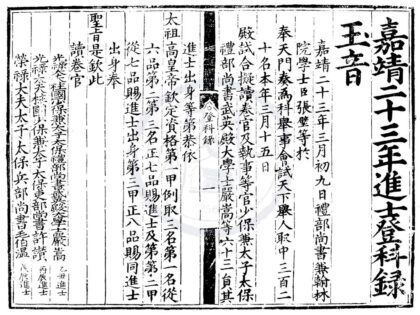 嘉靖二十三年進士登科録
玉音
嘉靖二十三年三月初九日禮部尚書兼翰林
院學士臣張璧等於
奉天門奏為科舉事會試天下舉人取中三百二
十名本年三月十五日
殿試合擬讀卷官及執事等官少保兼太子太保
禮部尚書武英殿大學士嚴嵩等六十三員其
進士出身等第恭依
登科錄
一
太祖高皇帝欽定資格第一甲例取三名第一名從
六品第二第三名正七品賜進士及第第二甲
從七品賜進士出身第三甲正八品賜同進士
出身奉
聖旨是欽此
讀卷官
光祿大夫柱國少保兼太子太保禮部尚書武英殿大學士嚴嵩 乙丑進士
光祿大夫柱國少保兼太子太保吏部尚書許讚 丙辰進士
榮祿大夫太子太保兵部尚書 伯溫 戊辰進士